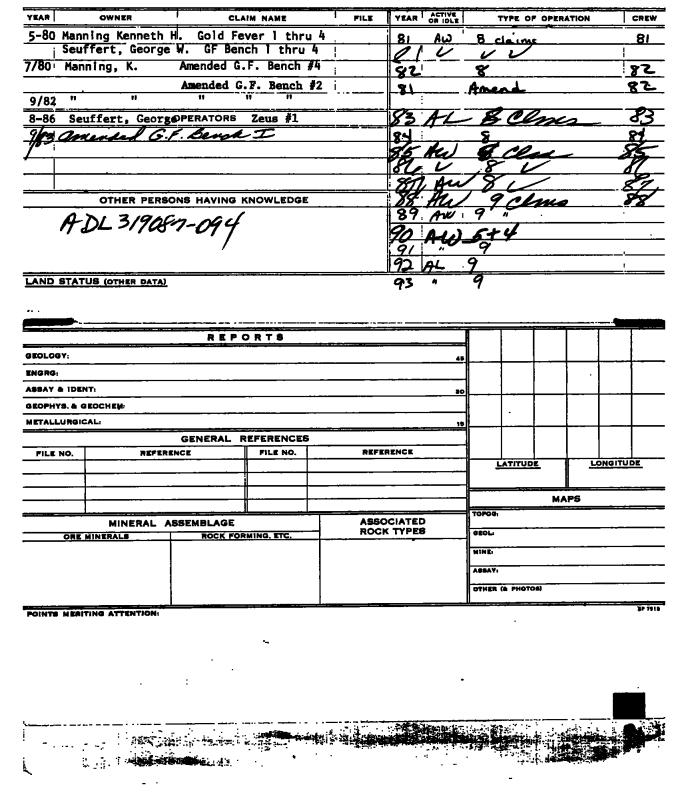 YEAR OWNER CLAIM NAME FILE
5-80 Manning Kenneth H. Gold Fever 1 thru 4
Seuffert, George W. GF Bench 1 thru 4
7/80 Manning, K. Amended G.F. Bench #4
Amended G.F. Bench #2
9/82 " " " " "
8-86 Seuffert, George OPERATORS Zeus #1
9/83 Amended G.F. Bench I
OTHER PERSONS HAVING KNOWLEDGE
ADL 319087-094
LAND STATUS (OTHER DATA)
YEAR ACTIVE OR IDLE TYPE OF OPERATION CREW
81 AW 8 claims 81
81 ✓ ✓ ✓
82 8 82
81 Amend 82
83 AL 8 Clms 83
84 8 84
85 AW 8 Clms 85
86 ✓ 8 ✓ 86
87 AW 8 ✓ 87
88 AW 9 Clms 88
89 AW 9 "
90 AW 5+4
91 " 9
92 AL 9
93 " 9
REPORTS
GEOLOGY: 45
ENGRG:
ASSAY & IDENT: 30
GEOPHYS. & GEOCHEM:
METALLURGICAL: 15
GENERAL REFERENCES
FILE NO. REFERENCE FILE NO. REFERENCE
LATITUDE LONGITUDE
MAPS
TOPOG:
GEOL:
MINE:
ASSAY:
OTHER (& PHOTOS)
MINERAL ASSEMBLAGE ASSOCIATED ROCK TYPES
ORE MINERALS ROCK FORMING, ETC.
POINTS MERITING ATTENTION: